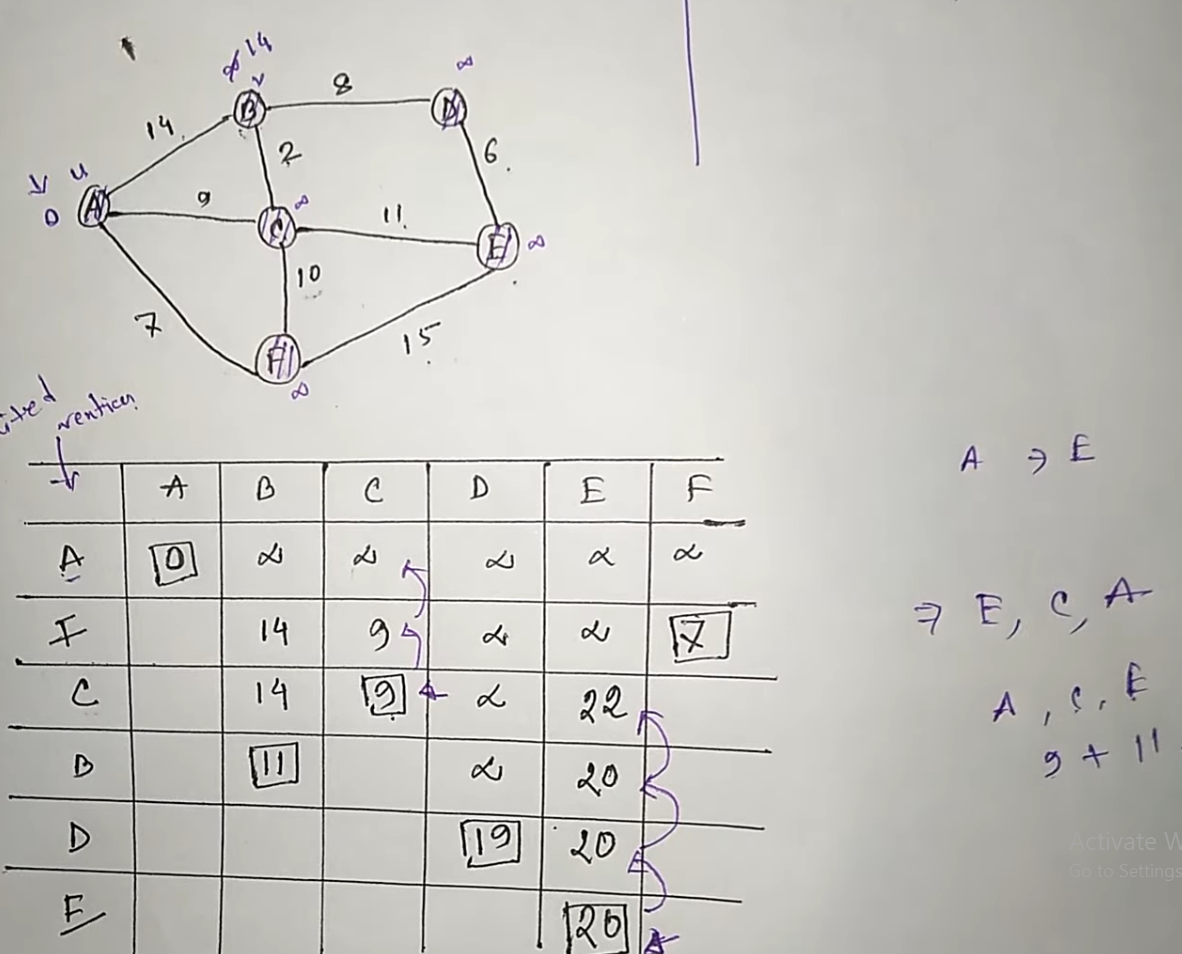 ∞ 14
∞
B 8 D
14
2
6
u
0 A 9 C ∞ 11 E ∞
10
7 15
F
∞
vertices
A B C D E F
A 0 ∞ ∞ ∞ ∞ ∞
F 14 9 ∞ ∞ 7
C 14 9 ∞ 22
B 11 ∞ 20
D 19 20
E 20
A → E
⇒ E, C, A
A, C, E
9 + 11
Activate W
Go to Settings